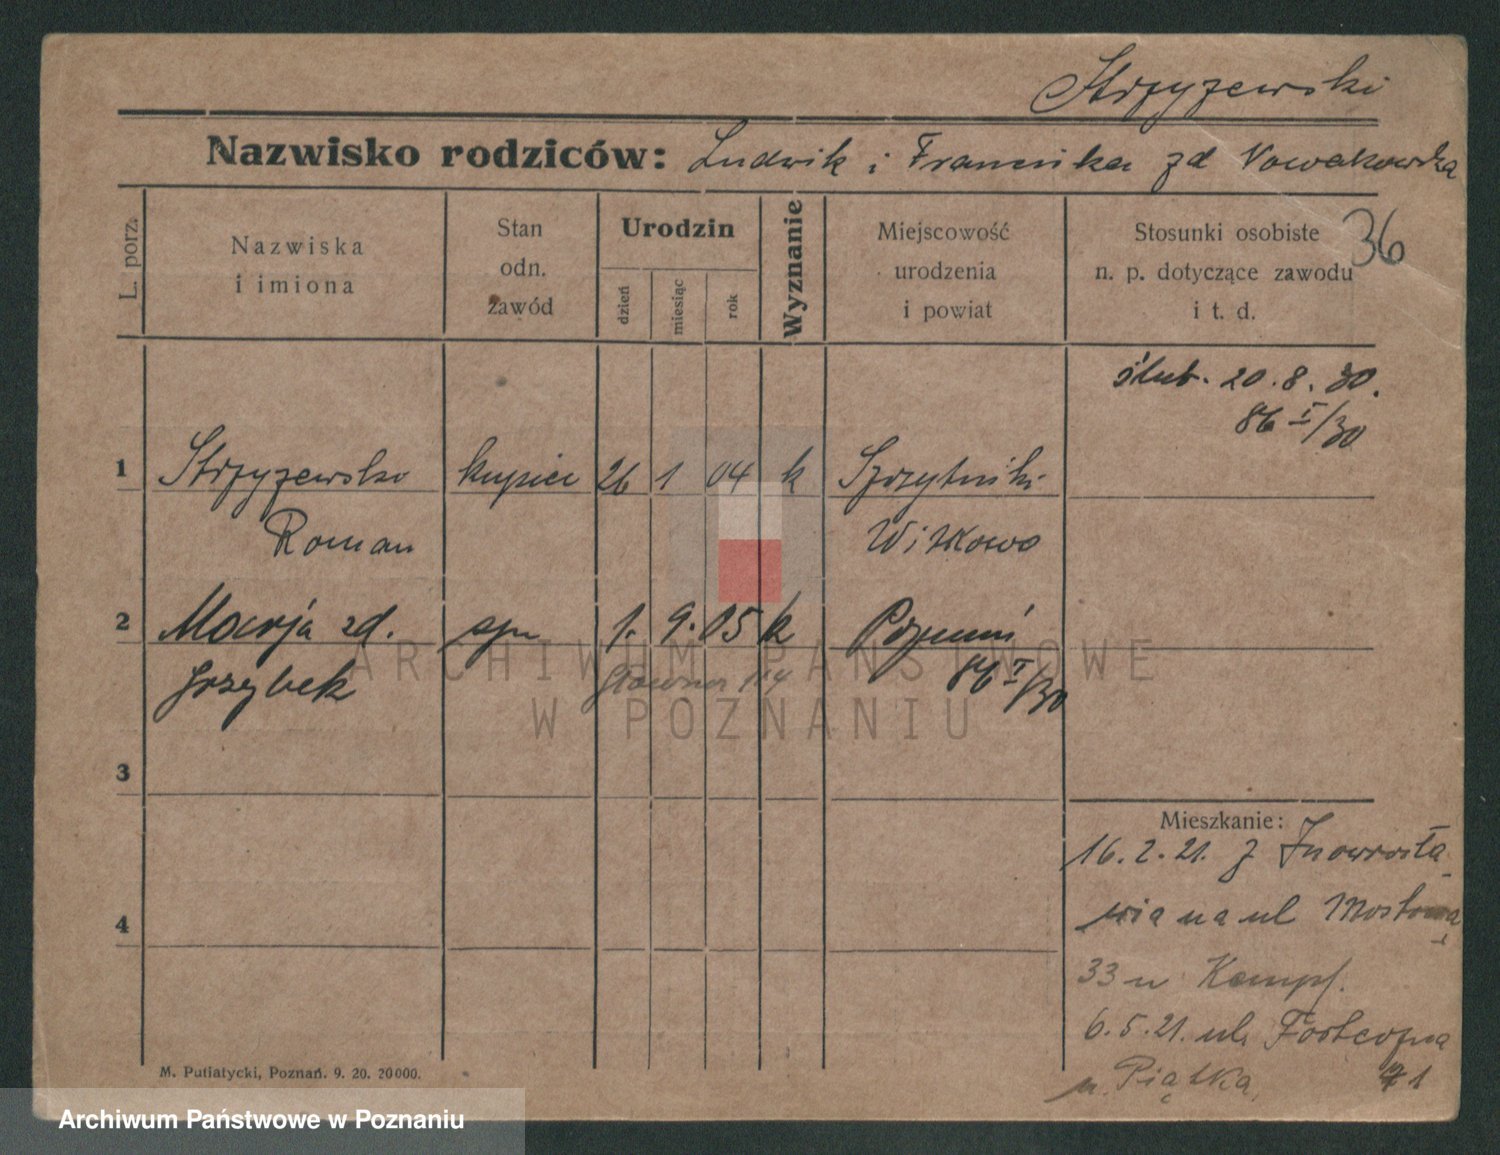 Strzyżewski
Nazwisko rodziców: Ludwik i Franciszka zd Nowakowska
L. porz.
Nazwiska
i imiona
Stan
odn.
zawód
Urodzin
dzień
miesiąc
rok
Wyznanie
Miejscowość
urodzenia
i powiat
Stosunki osobiste
n. p. dotyczące zawodu
i t. d.
36
ślub. 20.8.30.
86 I/30
1 Strzyżewski kupiec 26 1 04 k Szczytniki
Roman Witkowo
2 Marja zd. 1. 9. 05 k Poznań
Grzybek Główna 86 I/30
3
4
Mieszkanie:
16.2.21. z Inowrocła
wia na ul Mostową
33 u Kempf.
6.5.21. ul. Forteczna
u. Piątka, 1
M. Putiatycki, Poznań. 9. 20. 20000.
ARCHIWUM PAŃSTWOWE
W POZNANIU
Archiwum Państwowe w Poznaniu